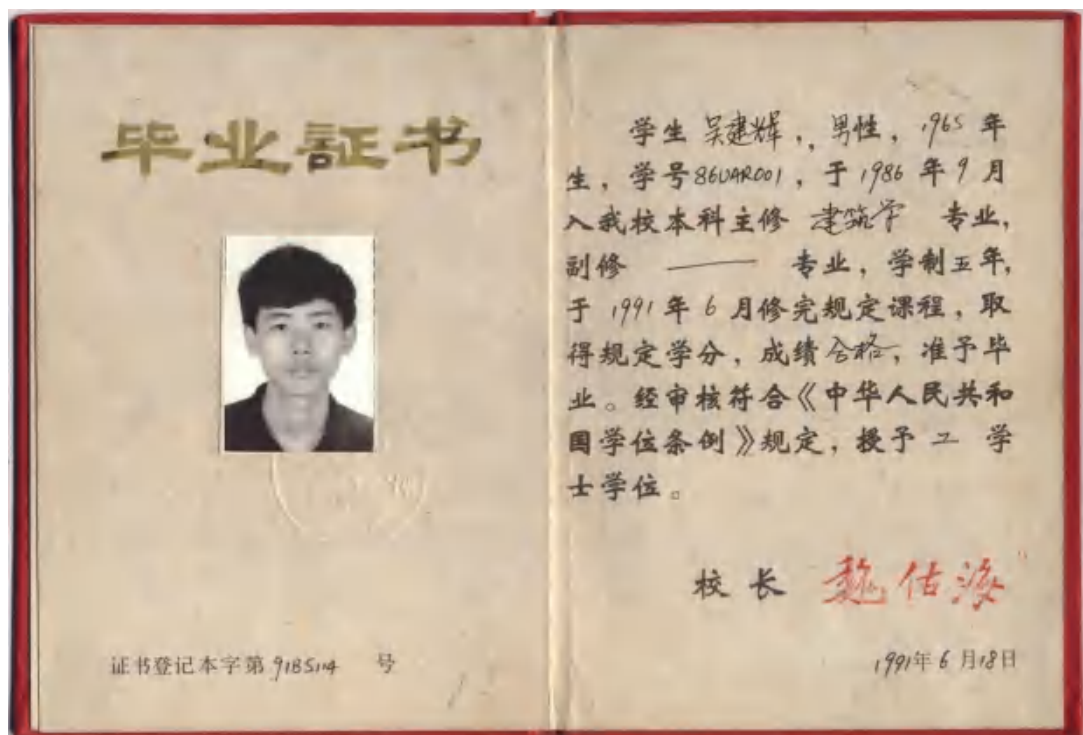 毕业証书
证书登记本字第9185114 号
学生 吴建辉, 男性, 1965 年
生, 学号86UAR001, 于 1986 年 9 月
入我校本科主修 建筑学 专业,
副修 —— 专业, 学制五年,
于 1991 年 6 月修完规定课程, 取
得规定学分, 成绩合格, 准予毕
业。经审核符合《中华人民共和
国学位条例》规定, 授予 工 学
士学位。
校长 魏佑海
1991年 6 月18日